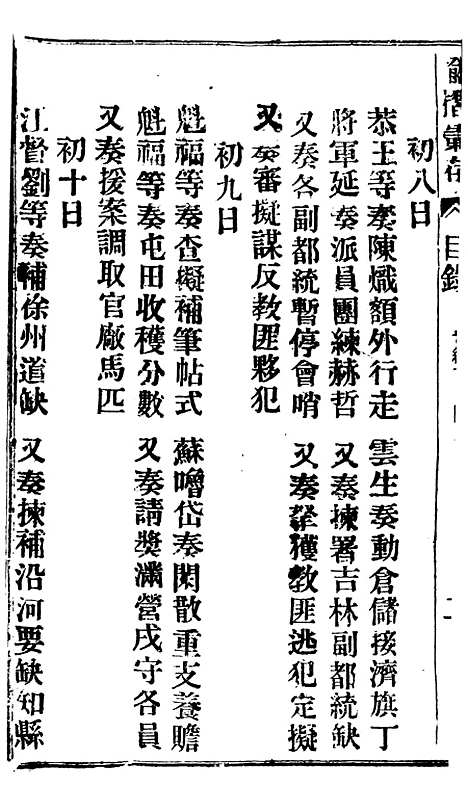 諭摺彙存 目錄
初八日
恭王等奏陳熾額外行走 雲生奏動倉儲接濟旗丁
將軍延奏派員團練赫哲 又奏揀署吉林副都統缺
又奏各副都統暫停會哨 又奏拏獲教匪逃犯定擬
又奏審擬謀反教匪夥犯
初九日
魁福等奏查擬補筆帖式 蘇嚕岱奏閑散重支養贍
魁福等奏屯田收穫分數 又奏請獎滿營戍守各員
又奏援案調取官廠馬匹
初十日
江督劉等奏補徐州道缺 又奏揀補沿河要缺知縣